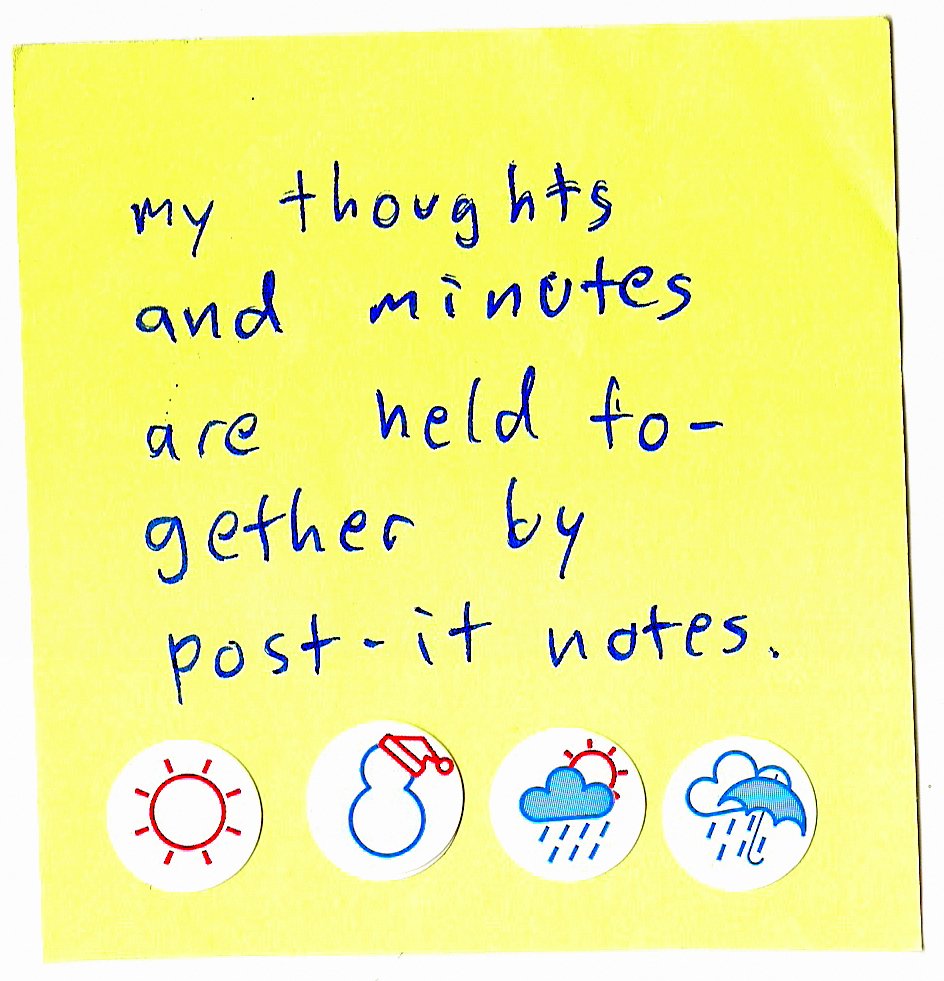 my thoughts
and minutes
are held to-
gether by
post-it notes.